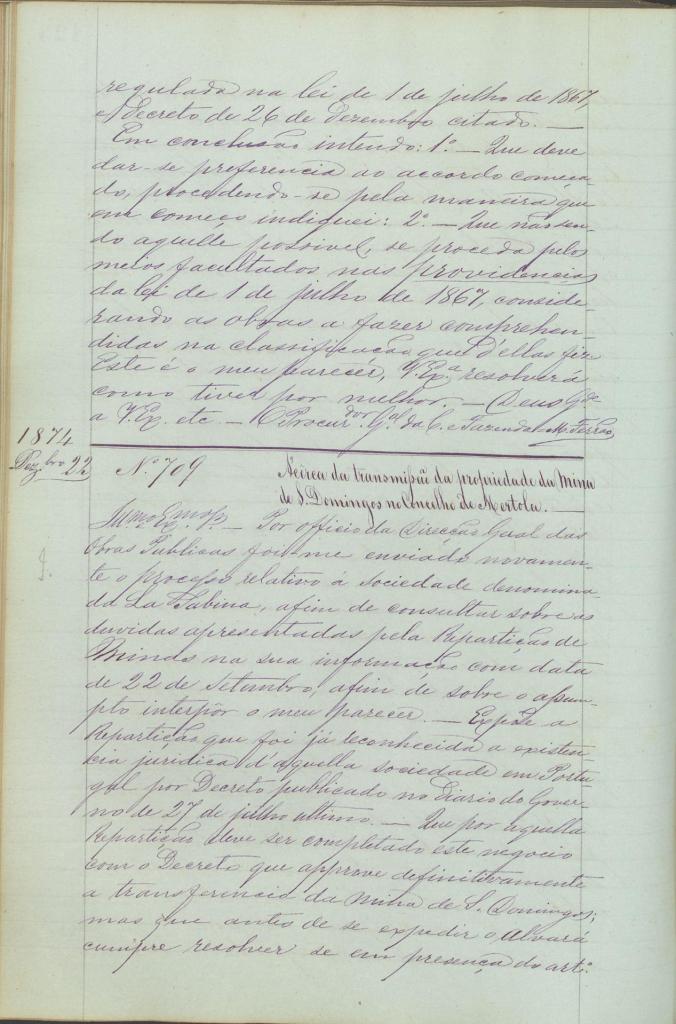 regulada na lei de 1 de julho de 1867,
e Decreto de 26 de Dezembro citado. —
Em conclusão intendo: 1º — Que deve
dar-se preferencia ao accordo começa-
do, procedendo-se pela maneira que
em começo indiquei: 2º — Que não sen-
do aquelle possivel, se proceda pelos
meios facultados nas providencias
da lei de 1 de julho de 1867, conside-
rando as obras a fazer comprehen-
didas na classificação que d'ellas fiz.
Este é o meu parecer, V. Exª resolverá
como tiver por melhor. — Deus Gde
a V. Ex. etc — O Procurdor Gal da C. e Fazenda M. Ferrão
1874
Dezbro 22
Nº 709
Ácêrca da transmissão da propriedade da Mina
de S. Domingos no Concelho de Mertola. —
Illmo Exmo Sr. — Por officio da Direcção Geral das
Obras Publicas foi-me enviado novamen-
te o processo relativo á Sociedade denomina-
da La Sabina, afim de consultar sobre as
duvidas apresentadas pela Repartição de
Minas na sua informação com data
de 22 de Setembro, afim de sobre o assum-
pto interpôr o meu parecer. — Expõe a
Repartição que foi já reconhecida a existen-
cia juridica d'aquella sociedade em Portu-
gal por Decreto publicado no Diario do Gover-
no de 27 de julho ultimo. — Que por aquella
Repartição deve ser completado este negocio
com o Decreto que approve definitivamente
a transferencia da Mina de S. Domingos;
mas que antes de se expedir o Alvará
cumpre resolver se em presença do artº